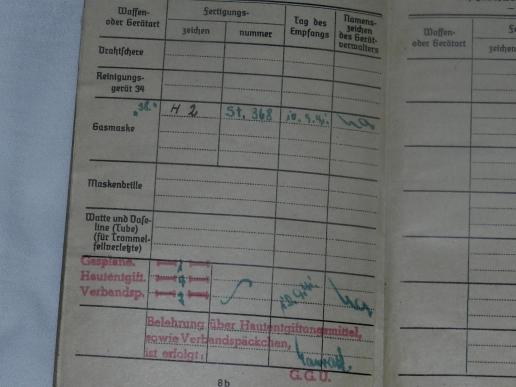 Waffen- oder Gerätart
Fertigungs-
zeichen nummer
Tag des Empfangs
Namens- zeichen des Gerät- verwalters
Drahtschere
Reinigungs- gerät 34
"38."
Gasmaske H 2 St. 368
Maskenbrille
Watte und Vase- line (Tube) (für Trommel- fellverletzte)
Gasplane.
Hautentgift.
Verbandsp.
Belehrung über Hautentgiftungsmittel,
sowie Verbandspäckchen,
ist erfolgt:
G.G.U.
8b
Waffen- oder Gerätart